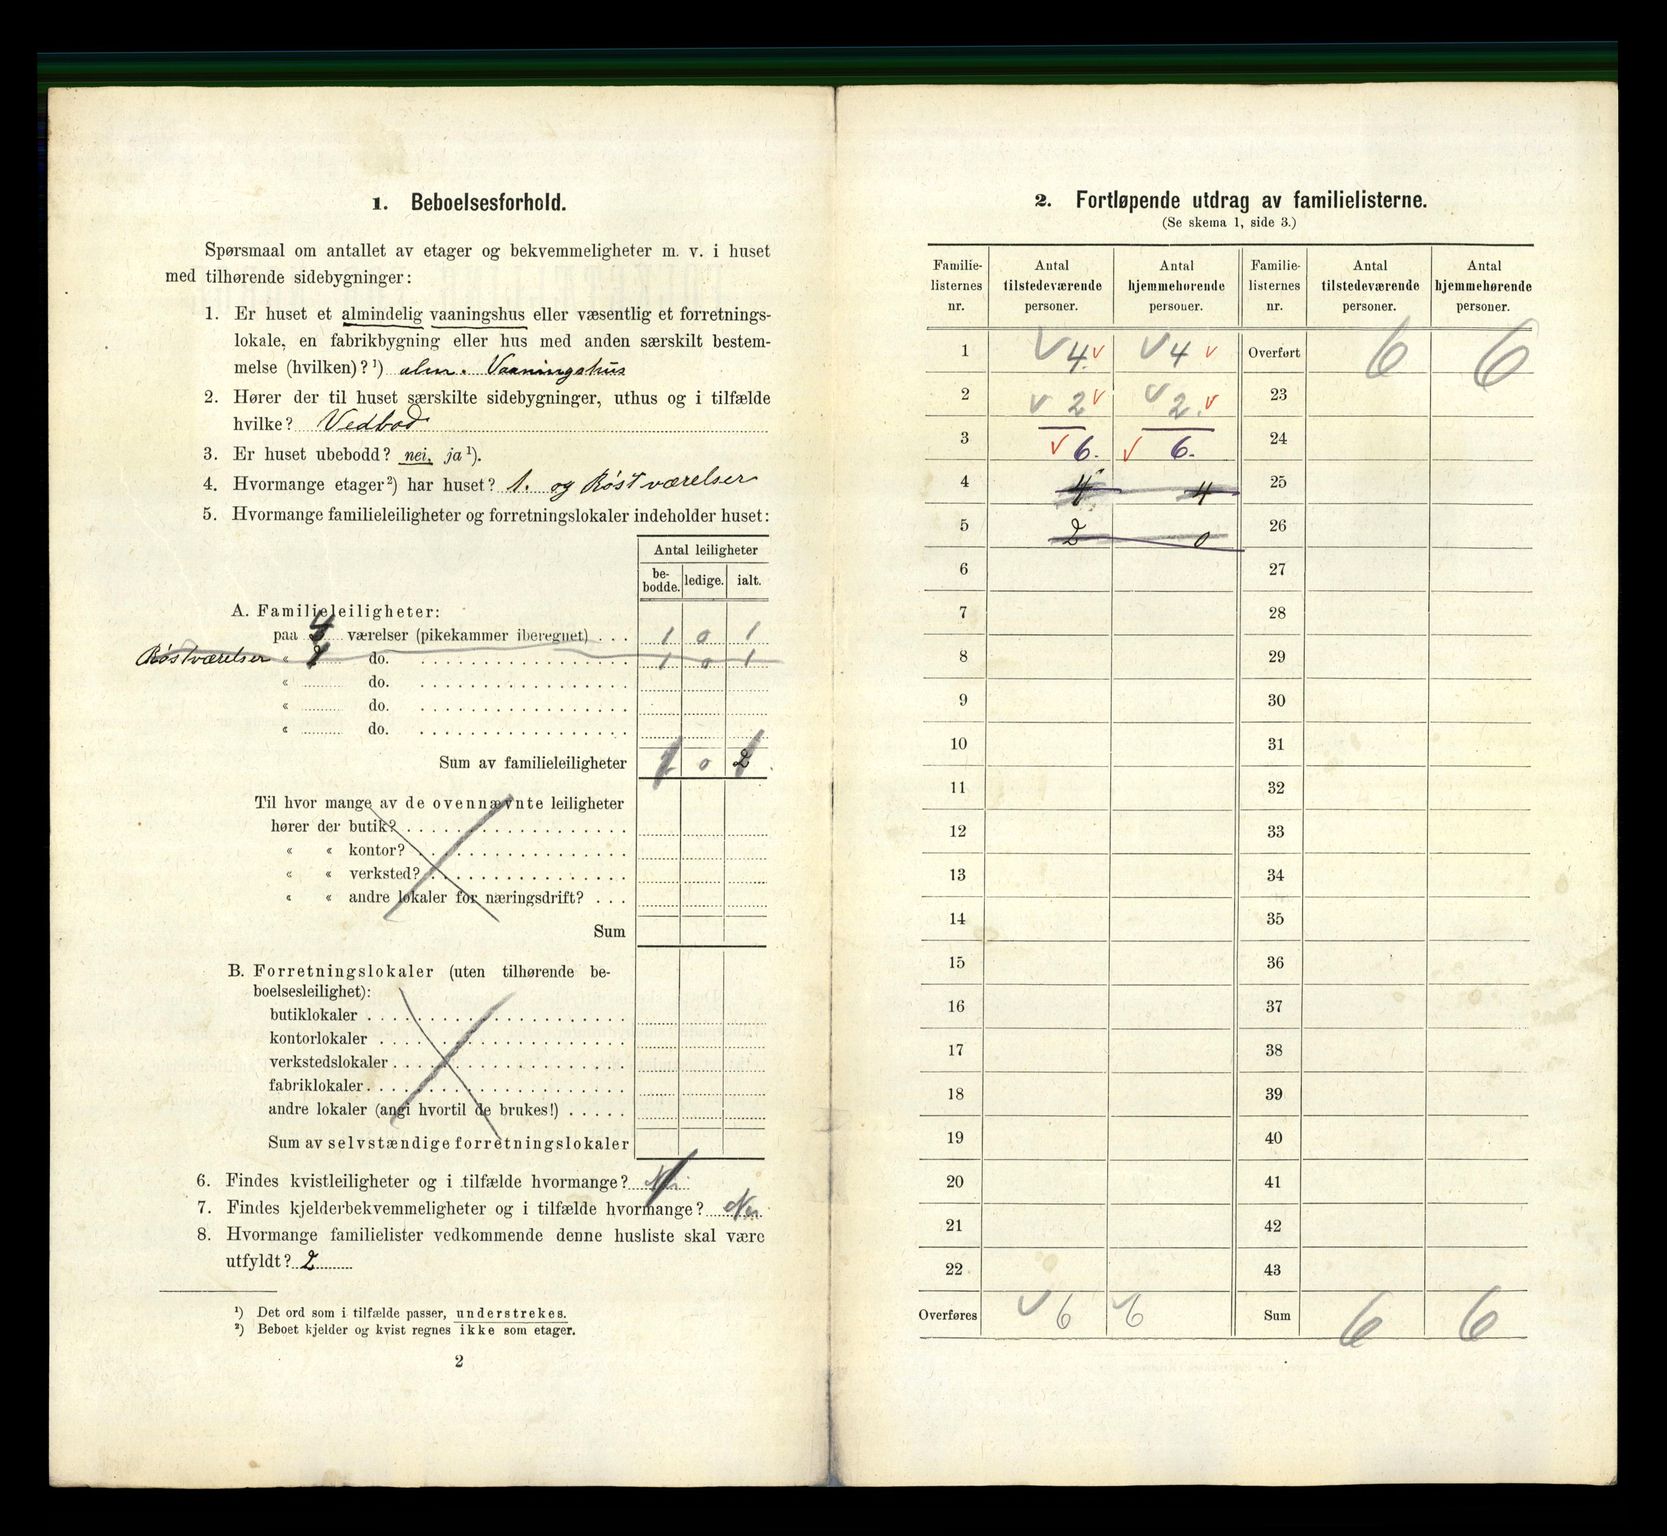 1. Beboelsesforhold.
Spørsmaal om antallet av etager og bekvemmeligheter m. v. i huset
med tilhørende sidebygninger:
1. Er huset et almindelig vaaningshus eller væsentlig et forretnings-
lokale, en fabrikbygning eller hus med anden særskilt bestem-
melse (hvilken)? ¹) alm. Vaaningshus
2. Hører der til huset særskilte sidebygninger, uthus og i tilfælde
hvilke? Vedbod
3. Er huset ubebodd? nei, ja ¹).
4. Hvormange etager ²) har huset? 1. og Røstværelser
5. Hvormange familieleiligheter og forretningslokaler indeholder huset:
Antal leiligheter
be-bodde. ledige. ialt.
A. Familieleiligheter:
paa 4 værelser (pikekammer iberegnet) . . . 1 0 1
Røstværelser « do. 1 0 1
« do.
« do.
« do.
Sum av familieleiligheter 1 0 1
Til hvor mange av de ovennævnte leiligheter
hører der butik?
« « kontor?
« « verksted?
« « andre lokaler for næringsdrift? . . .
Sum
B. Forretningslokaler (uten tilhørende be-
boelsesleilighet):
butiklokaler
kontorlokaler
verkstedslokaler
fabriklokaler
andre lokaler (angi hvortil de brukes!)
Sum av selvstændige forretningslokaler
6. Findes kvistleiligheter og i tilfælde hvormange?
7. Findes kjelderbekvemmeligheter og i tilfælde hvormange? Nei
8. Hvormange familielister vedkommende denne husliste skal være
utfyldt? 2
¹) Det ord som i tilfælde passer, understrekes.
²) Beboet kjelder og kvist regnes ikke som etager.
2
2. Fortløpende utdrag av familielisterne.
(Se skema 1, side 3.)
Familie-listernes nr. Antal tilstedeværende personer. Antal hjemmehørende personer. Familie-listernes nr. Antal tilstedeværende personer. Antal hjemmehørende personer.
1 4 4 Overført 6 6
2 2 2 23
3 6. 6. 24
4 4 4 25
5 2 0 26
6 27
7 28
8 29
9 30
10 31
11 32
12 33
13 34
14 35
15 36
16 37
17 38
18 39
19 40
20 41
21 42
22 43
Overføres 6 6 Sum 6 6